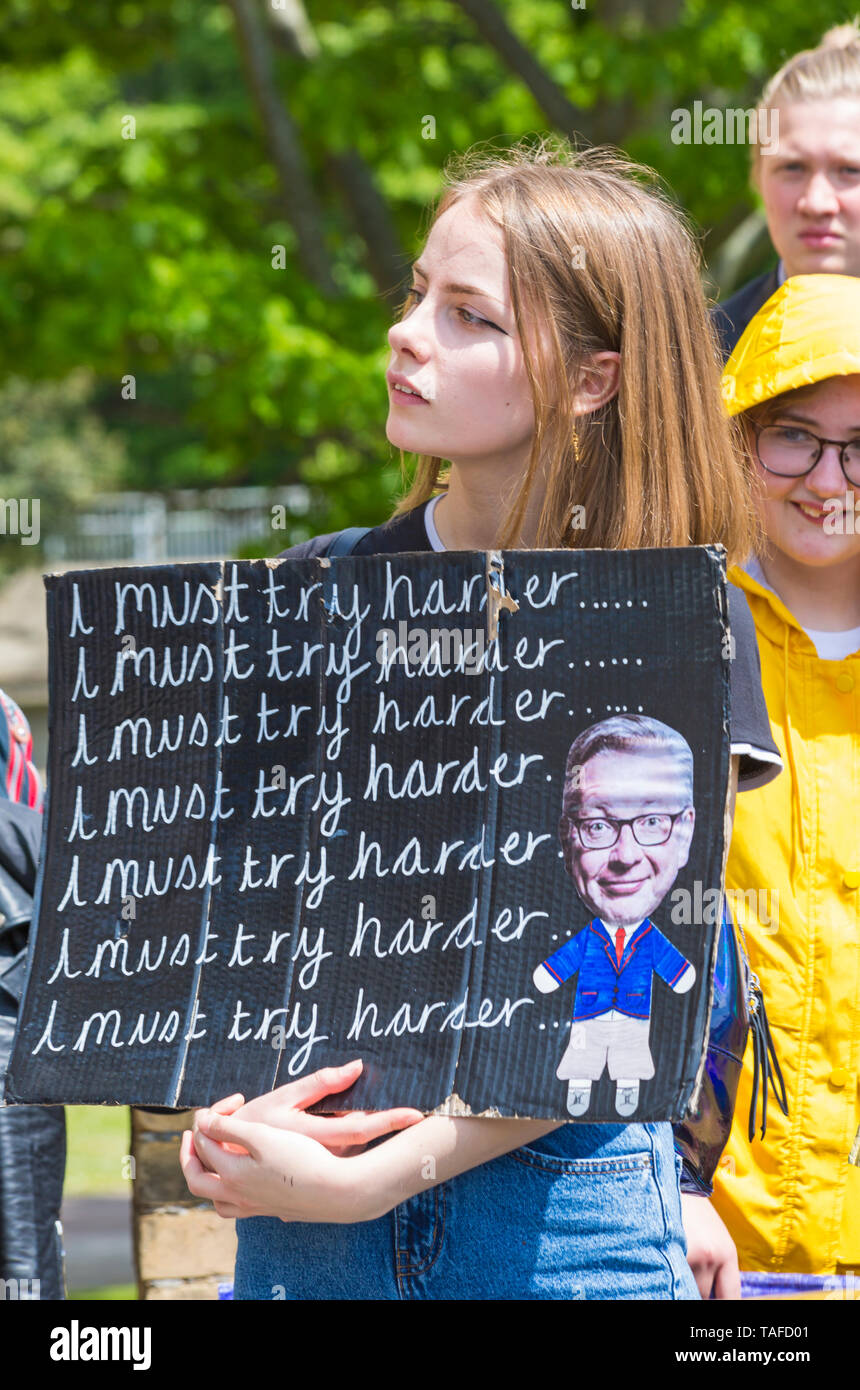 I must try harder......
I must try harder......
I must try harder......
I must try harder.
I must try harder.
I must try harder..
I must try harder...
alamy
Image ID: TAFD01
www.alamy.com